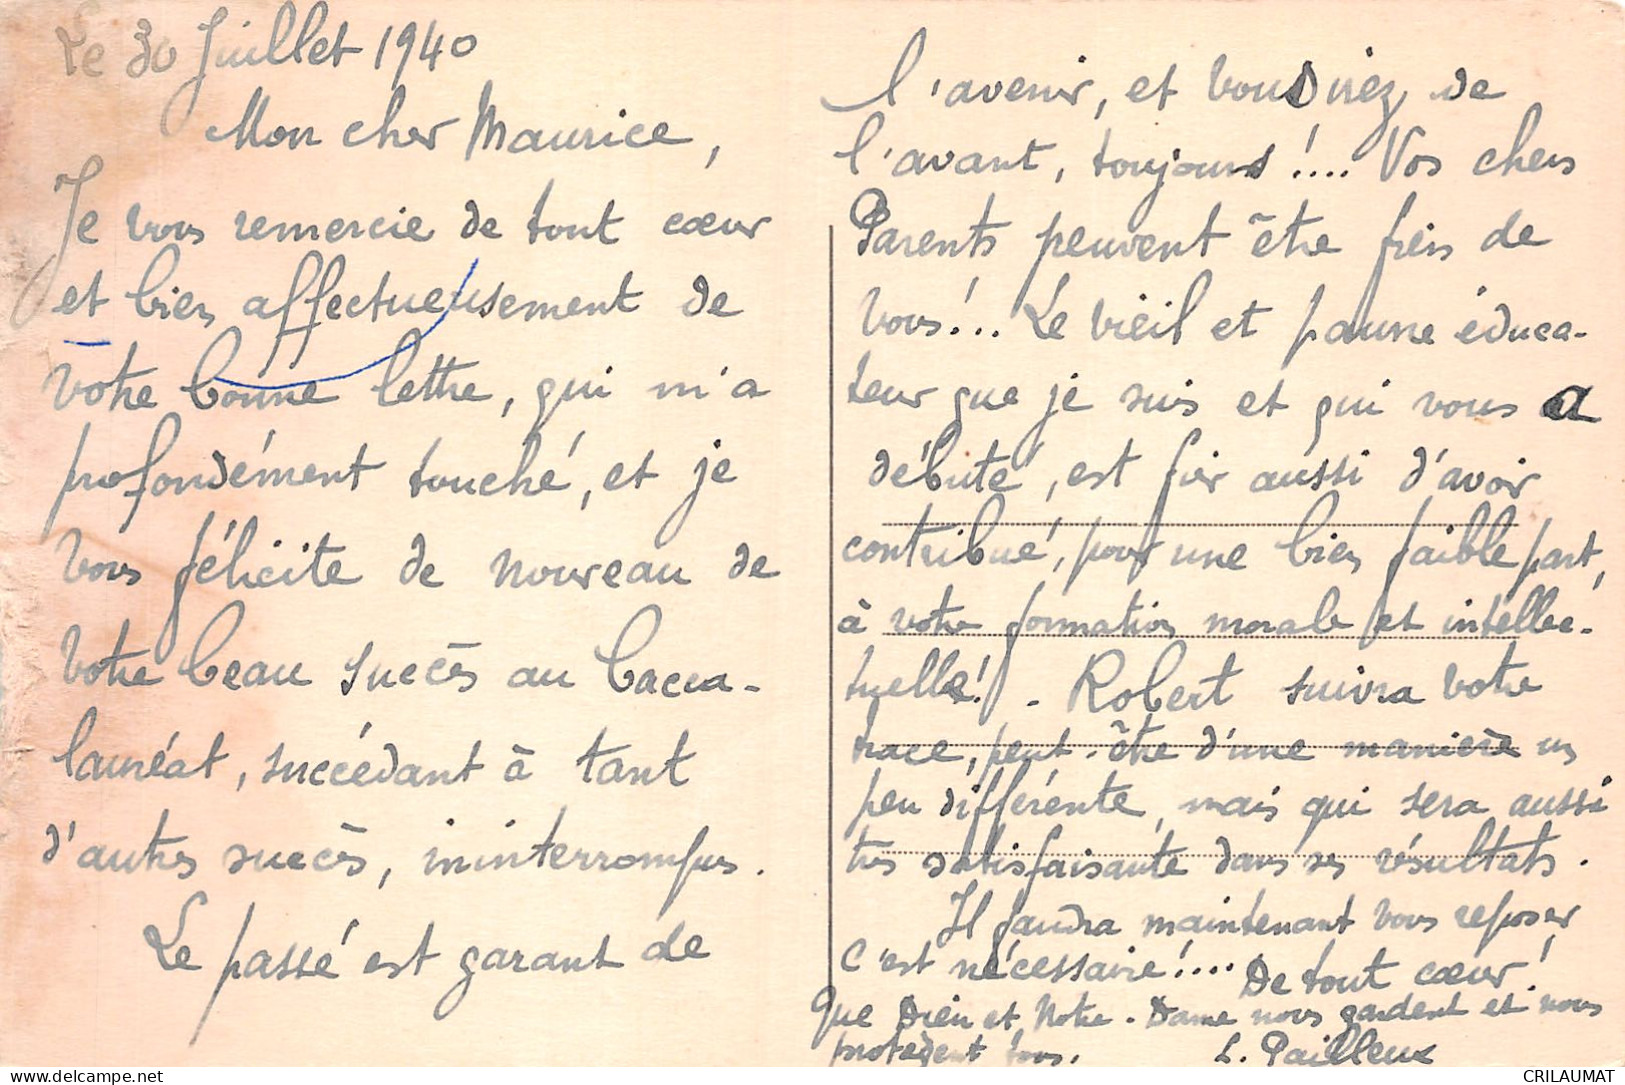 Le 30 Juillet 1940
Mon cher Maurice,
Je vous remercie de tout cœur
et bien affectueusement de
votre bonne lettre, qui m'a
profondément touché, et je
vous félicite de nouveau de
votre beau succès au bacca-
lauréat, succédant à tant
d'autres succès, ininterrompus.
Le passé est garant de
l'avenir, et vous irez de
l'avant, toujours !.... Vos chers
Parents peuvent être fiers de
vous !... Le vieil et pauvre éduca-
teur que je suis et qui vous a
débuté, est fier aussi d'avoir
contribué, pour une bien faible part,
à votre formation morale et intellec-
tuelle ! - Robert suivra votre
trace, peut-être d'une manière un
peu différente, mais qui sera aussi
très satisfaisante dans ses résultats.
Il faudra maintenant vous reposer
C'est nécessaire !.... De tout cœur !
Que Dieu et Notre-Dame nous gardent et nous
protègent tous. L. Pailleux
delcampe.net
CRILAUMAT